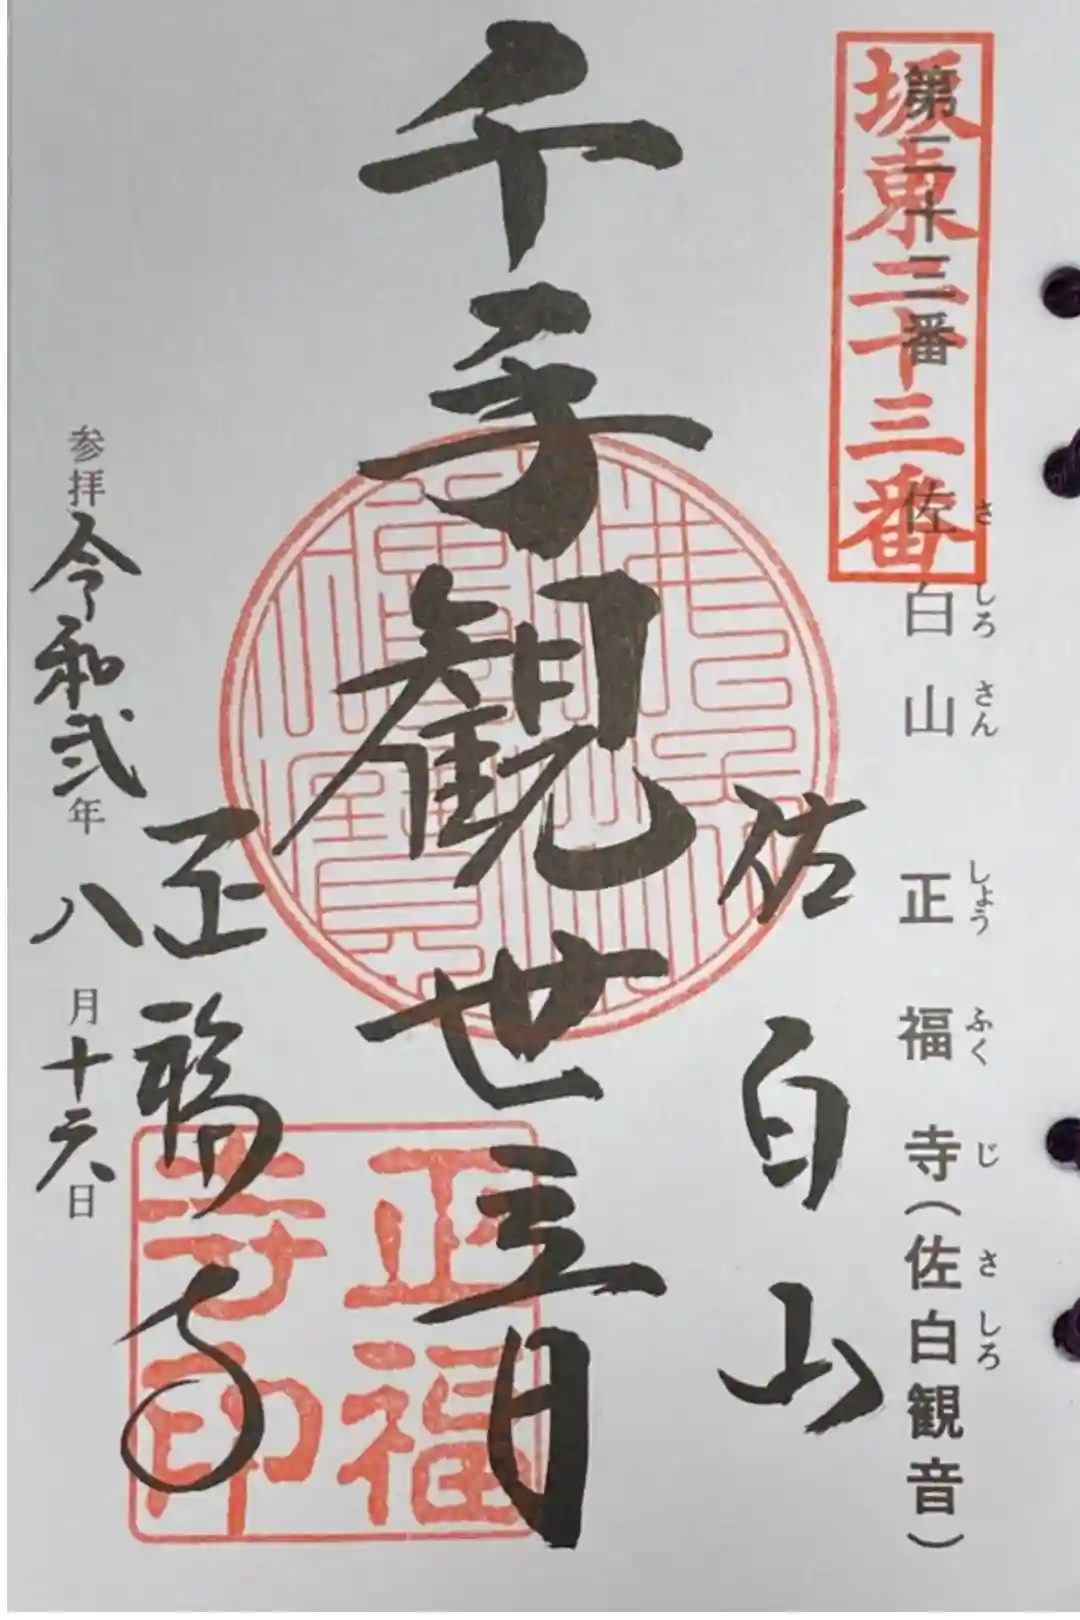 第二十三番 佐白山 正福寺(佐白観音)
さしろさん しょうふくじ さしろ
坂東二十三番
佐白山
千手観世音
正福寺
正福寺印
参拝令和弐年八月十六日